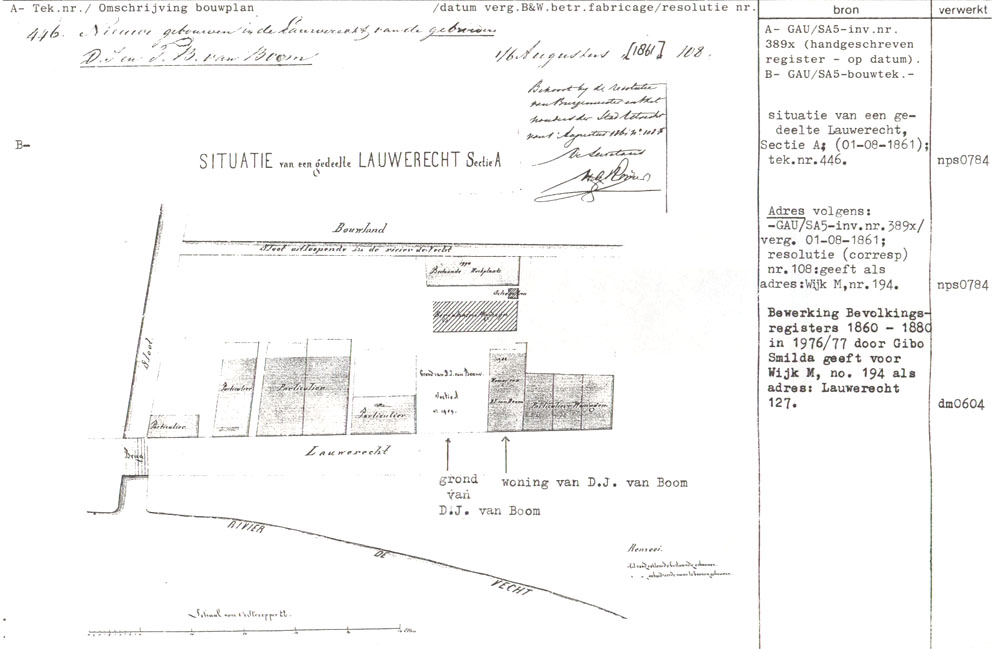 A- Tek.nr./ Omschrijving bouwplan /datum verg.B&W.betr.fabricage/resolutie nr.
bron
verwerkt
446. Nieuwe gebouwen in de Lauwerecht, van de gebroeders
D.J. en P.B. van Boom 1/6 Augustus [1861] 108.
A- GAU/SA5-inv.nr.
389x (handgeschreven
register - op datum).
B- GAU/SA5-bouwtek.-
Behoort bij de resolutie
van Burgemeester en Wet
houders der Stad Utrecht
van 1 Augustus 1861 N° 108
De Secretaris
B-
SITUATIE van een gedeelte LAUWERECHT Sectie A
situatie van een ge-
deelte Lauwerecht,
Sectie A; (01-08-1861);
tek.nr.446.
nps0784
Adres volgens:
-GAU/SA5-inv.nr.389x/
verg. 01-08-1861;
resolutie (corresp)
nr.108:geeft als
adres:Wijk M,nr.194.
nps0784
Bewerking Bevolkings-
registers 1860 - 1880
in 1976/77 door Gibo
Smilda geeft voor
Wijk M, no. 194 als
adres: Lauwerecht
127.
dm0604
Bouwland
Sloot uitloopende in de rivier de Vecht
Bestaande Werkplaats
Sloot
Particulier
Particulier
Particulier
Particulier
Grond van D.J. van Boom
Sectie A
Particuliere Woningen
Brug
Lauwerecht
grond
van
D.J. van Boom
woning van D.J. van Boom
RIVIER DE VECHT
Renvooi.
Schaal van